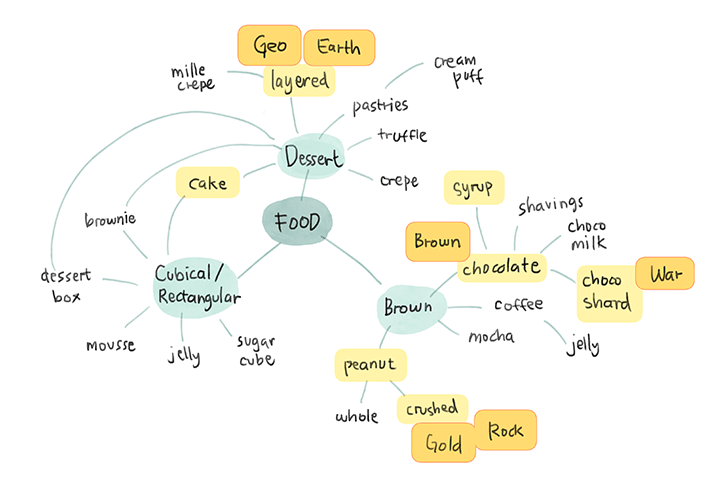 Geo
Earth
mille
crepe
layered
cream
puff
pastries
truffle
Dessert
crepe
cake
syrup
shavings
brownie
FOOD
choco
milk
Brown
chocolate
War
choco
shard
dessert
box
Cubical/
Rectangular
Brown
coffee
mocha
jelly
mousse
jelly
sugar
cube
peanut
whole
crushed
Gold
Rock